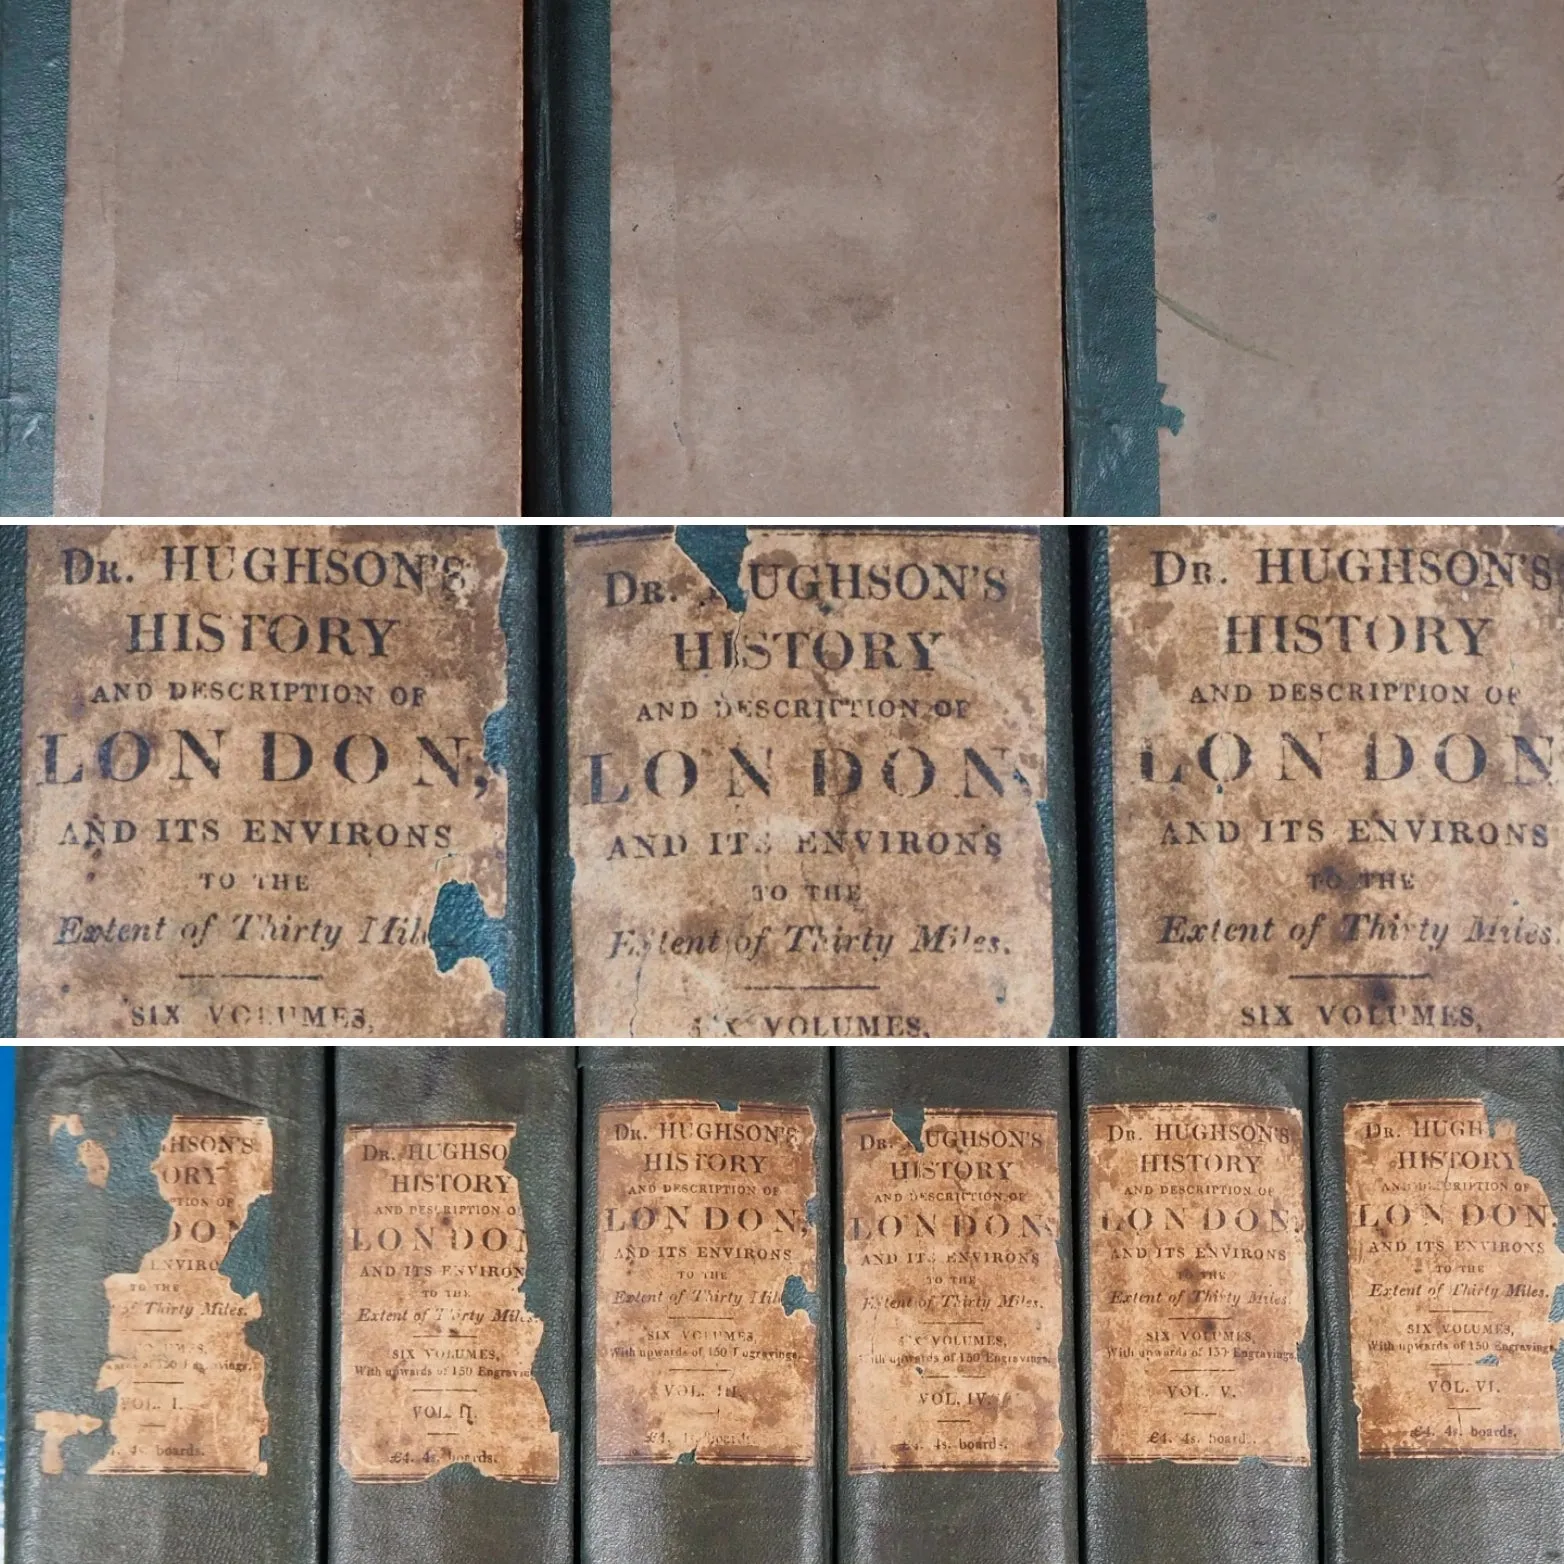 DR. HUGHSON'S
HISTORY
AND DESCRIPTION OF
LONDON,
AND ITS ENVIRONS
TO THE
Extent of Thirty Mil
SIX VOLUMES,
DR. UGHSON'S
HISTORY
AND DESCRIPTION OF
LONDON
AND ITS ENVIRONS
TO THE
Extent of Thirty Miles.
SIX VOLUMES,
DR. HUGHSON'S
HISTORY
AND DESCRIPTION OF
LONDON
AND ITS ENVIRONS
TO THE
Extent of Thirty Miles.
SIX VOLUMES,
HSON'S
ORY
TION OF
DON
ENVIRO
TO THE
of Thirty Miles.
VOL. I.
4s. boards.
DR. HUGHSO
HISTORY
AND DESCRIPTION O
LONDON
AND ITS ENVIRON
TO THE
Extent of Thirty Miles.
SIX VOLUMES,
With upwards of 150 Engravin
VOL. II.
£4. 4s. boards.
DR. HUGHSON'S
HISTORY
AND DESCRIPTION OF
LONDON,
AND ITS ENVIRONS
TO THE
Extent of Thirty Mil
SIX VOLUMES,
With upwards of 150 Engravings.
VOL. III.
£4. 4s. boards.
DR. UGHSON'S
HISTORY
AND DESCRIPTION OF
LONDON
AND ITS ENVIRONS
TO THE
Extent of Thirty Miles.
SIX VOLUMES,
With upwards of 150 Engravings.
VOL. IV.
£4. 4s. boards.
DR. HUGHSON'S
HISTORY
AND DESCRIPTION OF
LONDON,
AND ITS ENVIRONS
TO THE
Extent of Thirty Miles.
SIX VOLUMES,
With upwards of 150 Engravings.
VOL. V.
£4. 4s. board
DR. HUGH
HISTORY
AND DESCRIPTION OF
LONDON,
AND ITS ENVIRONS
TO THE
Extent of Thirty Miles.
SIX VOLUMES,
With upwards of 150 Engravings.
VOL. VI.
£4. 4s. boards.